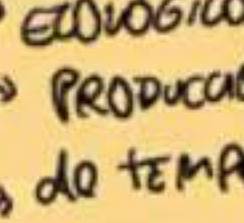 ECOLOGICO
PRODUCCI
de TEMP